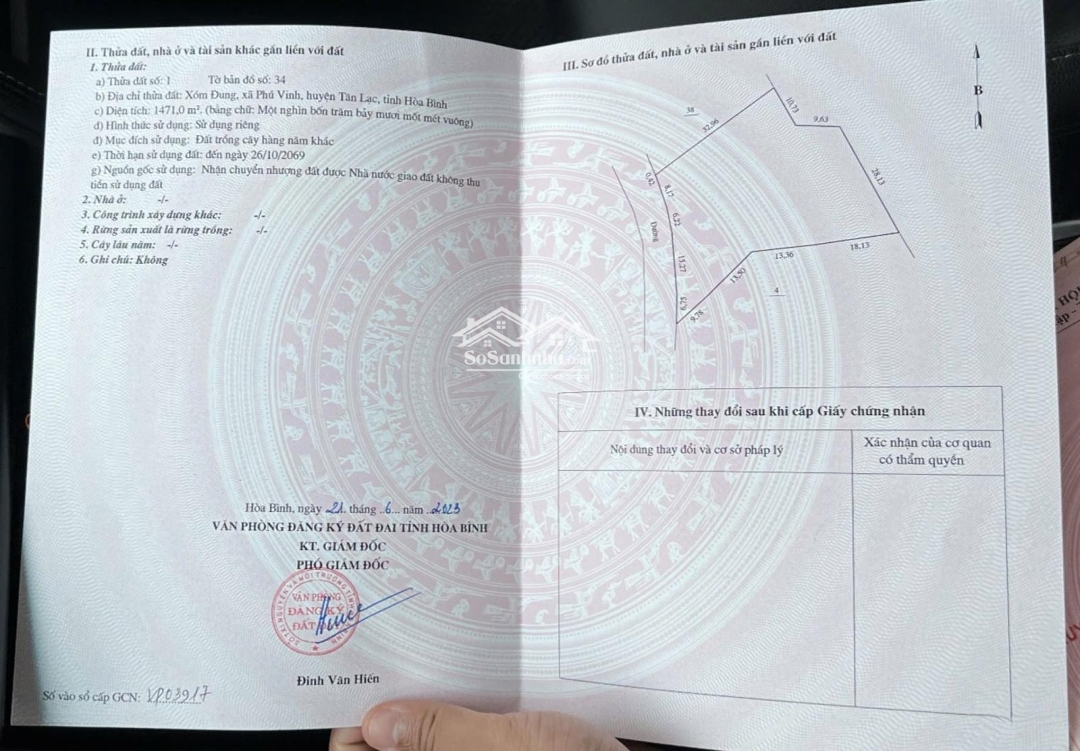 II. Thửa đất, nhà ở và tài sản khác gắn liền với đất
1. Thửa đất:
a) Thửa đất số: 1 Tờ bản đồ số: 34
b) Địa chỉ thửa đất: Xóm Đung, xã Phú Vinh, huyện Tân Lạc, tỉnh Hòa Bình
c) Diện tích: 1471,0 m², (bằng chữ: Một nghìn bốn trăm bảy mươi mốt mét vuông)
d) Hình thức sử dụng: Sử dụng riêng
đ) Mục đích sử dụng: Đất trồng cây hàng năm khác
e) Thời hạn sử dụng đất: đến ngày 26/10/2069
g) Nguồn gốc sử dụng: Nhận chuyển nhượng đất được Nhà nước giao đất không thu
tiền sử dụng đất
2. Nhà ở: -/-
3. Công trình xây dựng khác: -/-
4. Rừng sản xuất là rừng trồng: -/-
5. Cây lâu năm: -/-
6. Ghi chú: Không
Hòa Bình, ngày 21 tháng 6 năm 2023
VĂN PHÒNG ĐĂNG KÝ ĐẤT ĐAI TỈNH HÒA BÌNH
KT. GIÁM ĐỐC
PHÓ GIÁM ĐỐC
VĂN PHÒNG
ĐĂNG KÝ
ĐẤT
Đinh Văn Hiến
Số vào sổ cấp GCN: VP03917
III. Sơ đồ thửa đất, nhà ở và tài sản gắn liền với đất
B
38
32,96
10,73
9,63
28,13
18,13
13,36
13,50
9,78
6,75
15,27
6,22
8,17
0,42
Đường
4
SoSanhnha.com
IV. Những thay đổi sau khi cấp Giấy chứng nhận
Nội dung thay đổi và cơ sở pháp lý
Xác nhận của cơ quan
có thẩm quyền